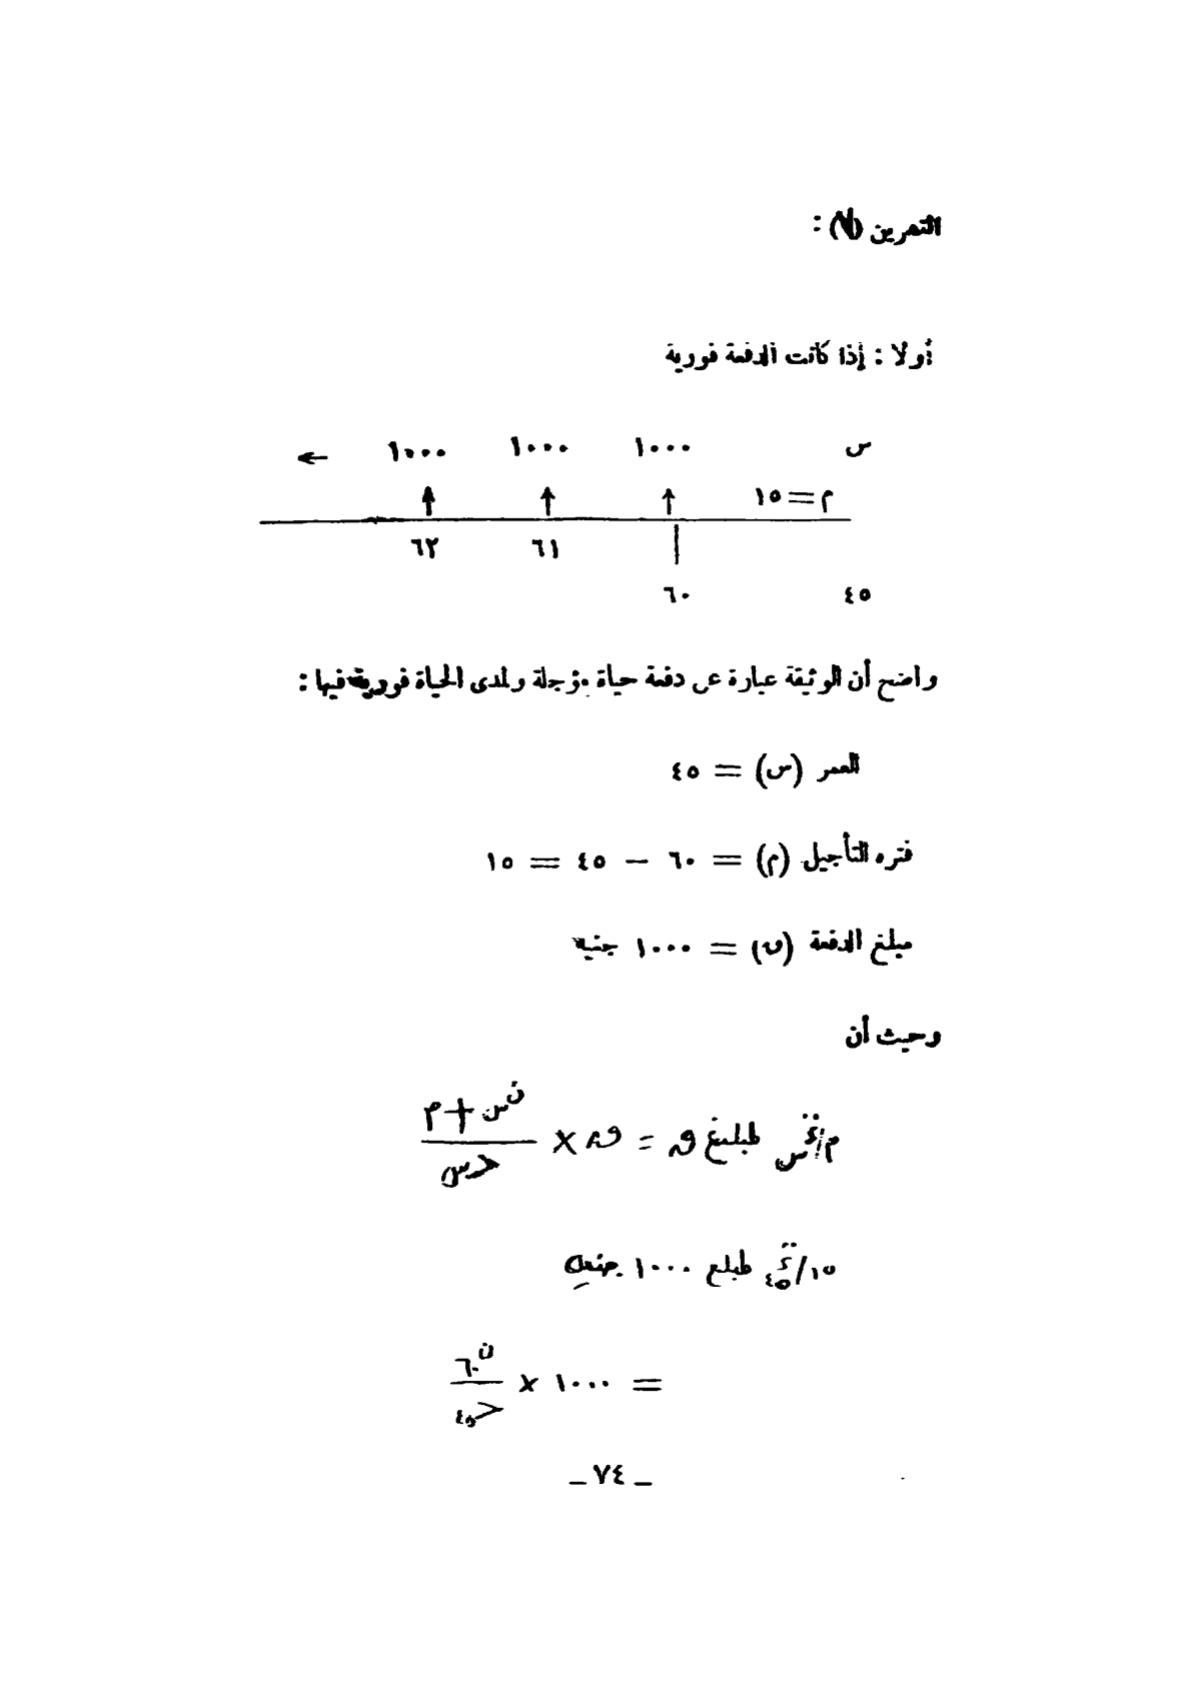 التمرين (٧) :
أولا : إذا كانت الدفعة فورية
س ١٠٠٠ ١٠٠٠ ١٠٠٠ ←
م = ١٥
٦١ ٦٢
٤٥ ٦٠
واضح أن الوثيقة عبارة عن دفعة حياة مؤجلة ولمدى الحياة فورية فيها :
العمر (س) = ٤٥
فتره التأجيل (م) = ٦٠ – ٤٥ = ١٥
مبلغ الدفعة (ق) = ١٠٠٠ جنيه
وحيث أن
لمبلغ ق = ق × ن س + م / ء س
١٥/ ٤٥ لمبلغ ١٠٠٠ جنيه
= ١٠٠٠ × ن ٦٠ / ء ٤٥
– ٧٤ –